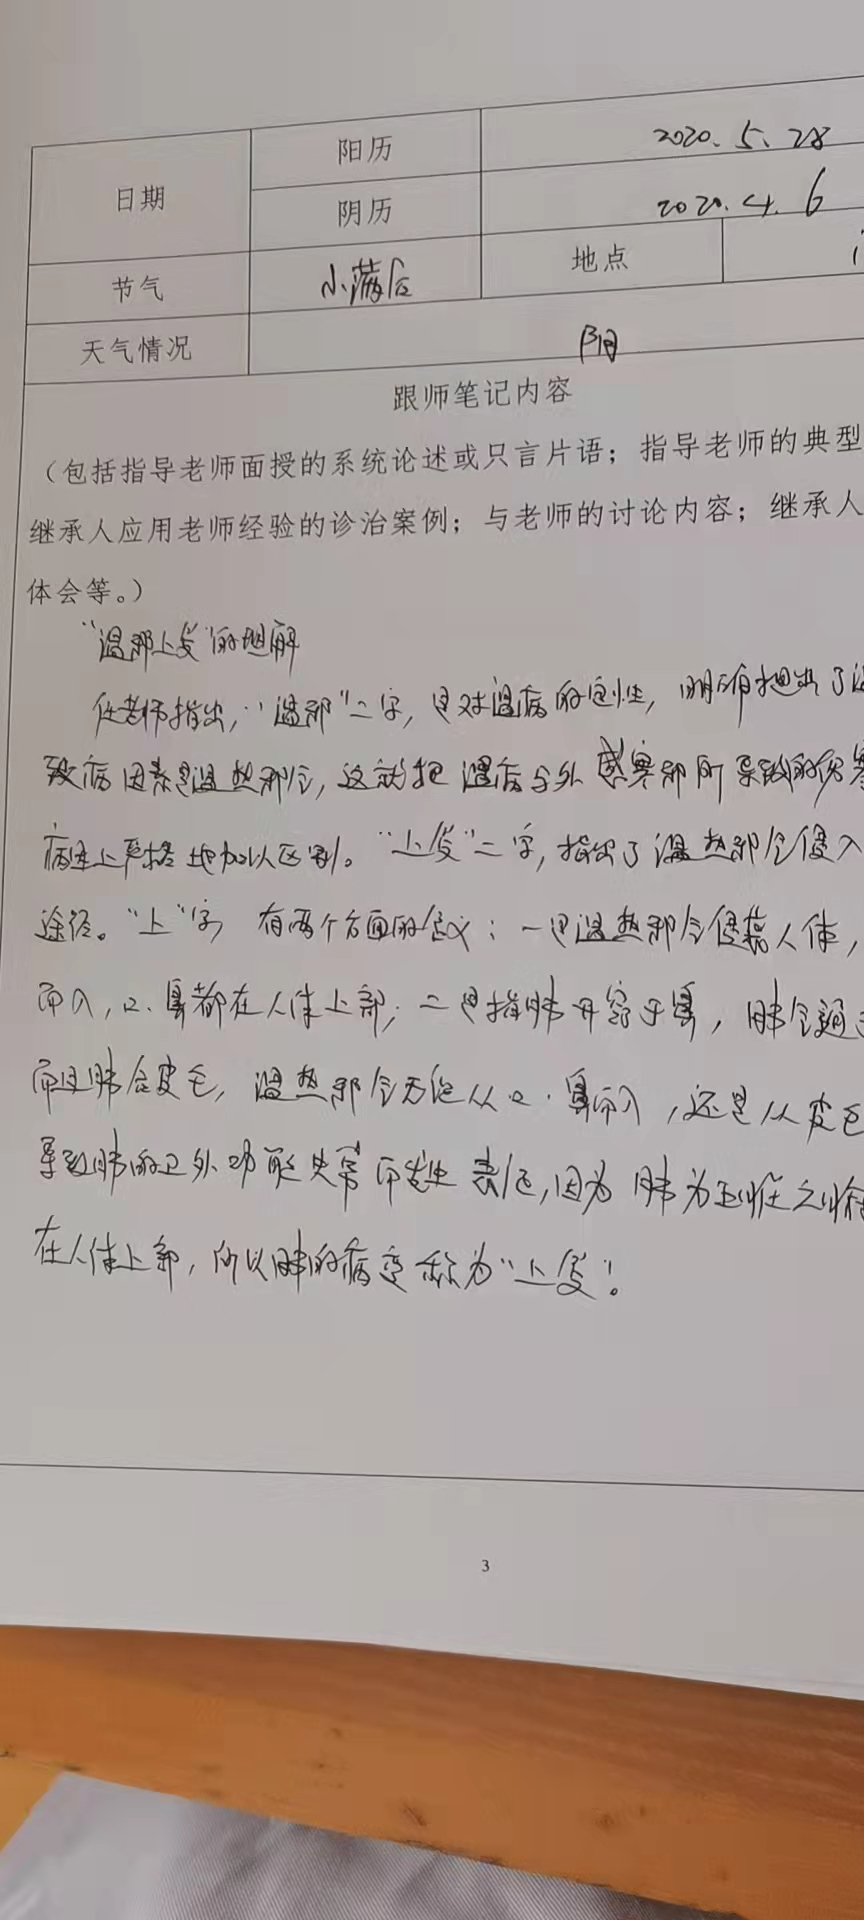 日期 阳历 2020.5.28
阴历 2020.4.6
节气 小满后 地点
天气情况 阴
跟师笔记内容
（包括指导老师面授的系统论述或只言片语；指导老师的典型
继承人应用老师经验的诊治案例；与老师的讨论内容；继承人
体会等。）
“温邪上受”的理解
任老师指出，“温邪”二字，是对温病的定性，明确提出了温
致病因素是温热邪气，这就把温病与外感寒邪所导致的伤寒
病在上严格地加以区别。“上受”二字，指出了温热邪气侵入
途径。“上”字有两个方面的含义：一是温热邪气侵袭人体，
而入，口.鼻都在人体上部；二是指肺开窍于鼻，肺气通
而且肺合皮毛，温热邪气无论从口.鼻而入，还是从皮毛
导致肺的卫外功能失常而发生表证，因为肺为五脏之
在人体上部，所以肺的病变称为“上受”。
3